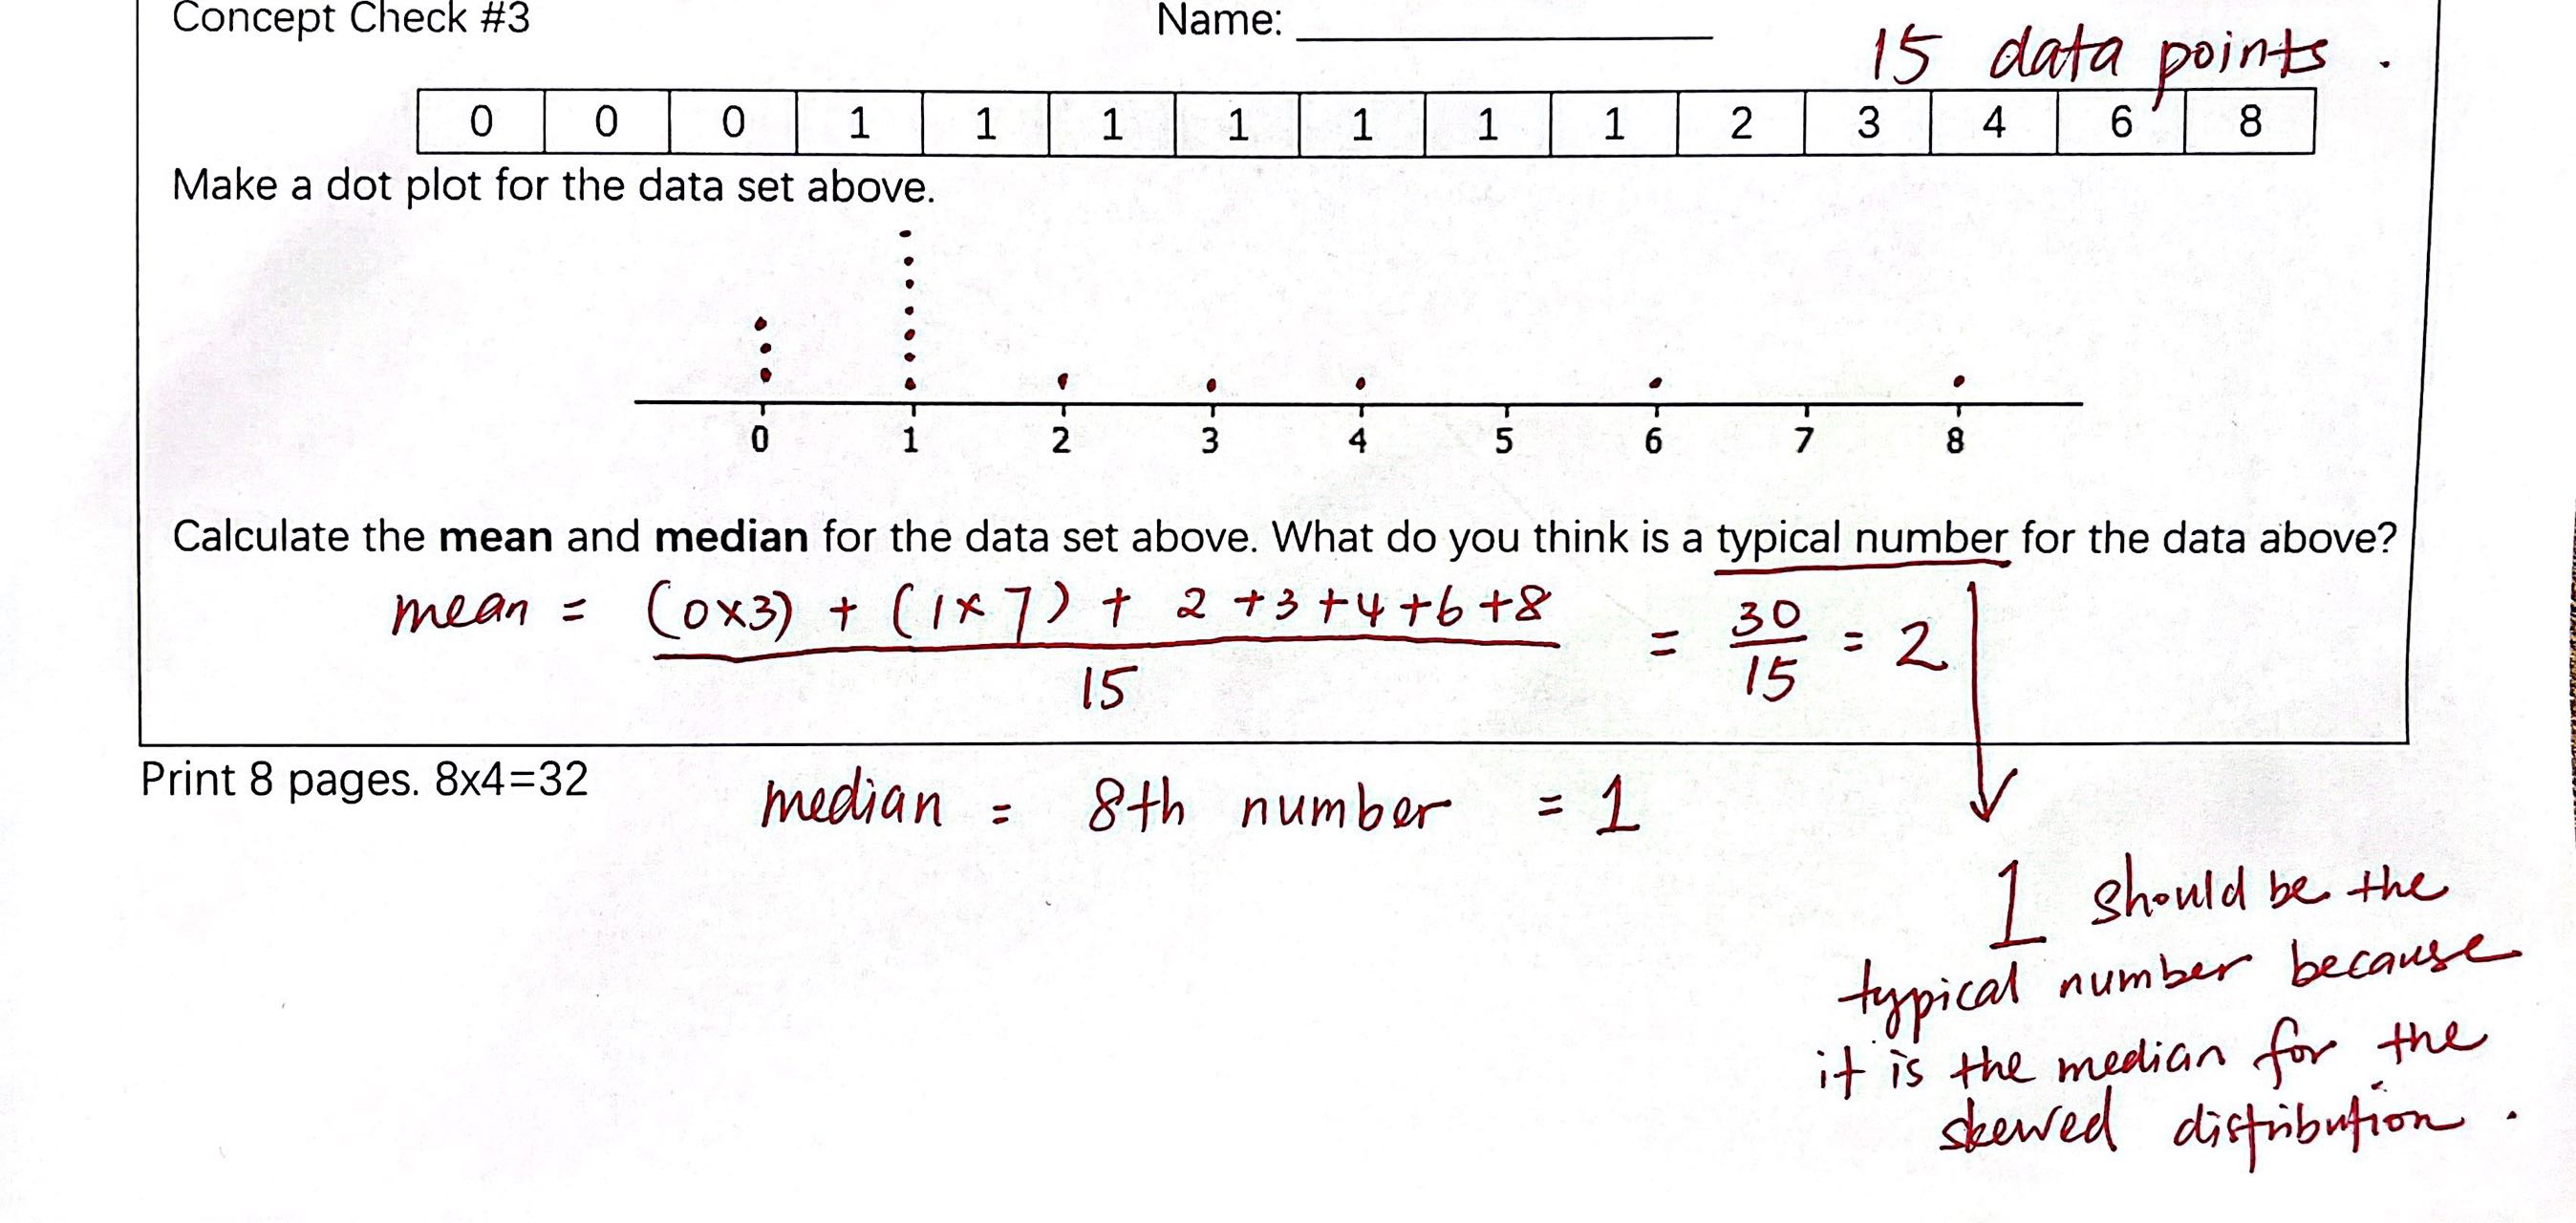 Concept Check #3 Name:
15 data points.
0 0 0 1 1 1 1 1 1 1 2 3 4 6 8
Make a dot plot for the data set above.
0 1 2 3 4 5 6 7 8
Calculate the mean and median for the data set above. What do you think is a typical number for the data above?
mean = (0x3) + (1x7) + 2+3+4+6+8 / 15 = 30/15 = 2
Print 8 pages. 8x4=32
median = 8th number = 1
1 should be the
typical number because
it is the median for the
skewed distribution.